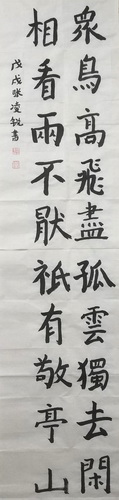 眾鳥高飛盡孤雲獨去閑
相看兩不厭祇有敬亭山
戊戌張凌銳書